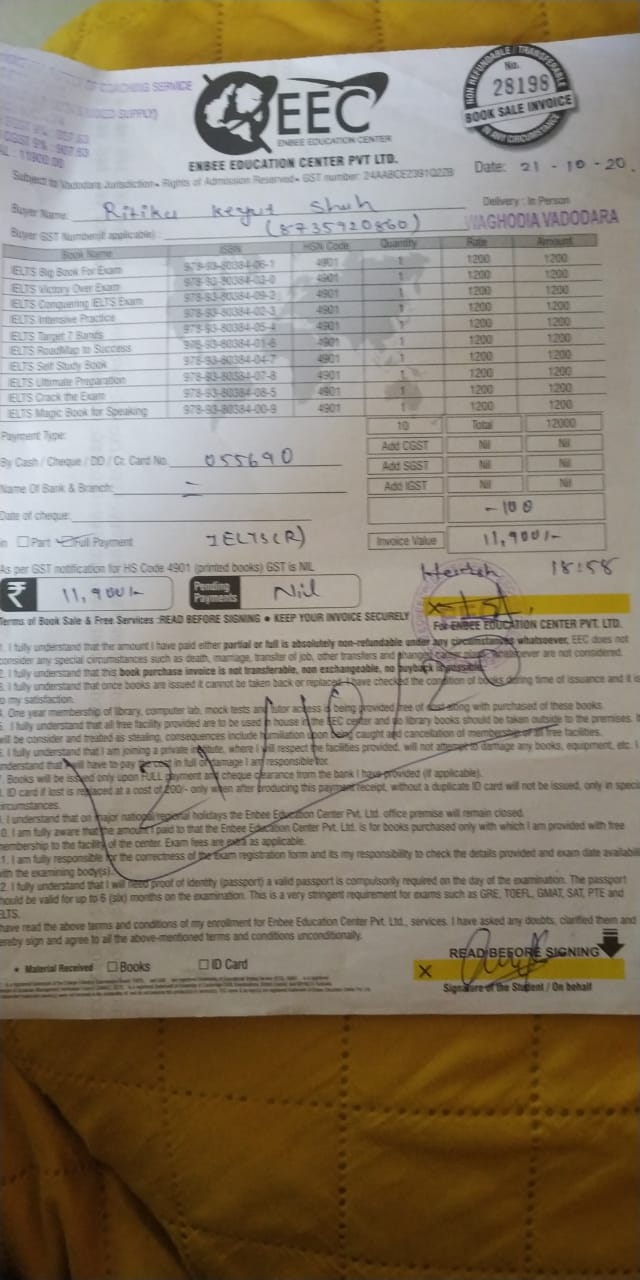 OF COACHING SERVICE
SUPPLY)
CGST 9% : 907.63
EEC
ENBEE EDUCATION CENTER
ENBEE EDUCATION CENTER PVT LTD.
NON REFUNDABLE / TRANSFERABLE
No.
28198
BOOK SALE INVOICE
IN ANY CIRCUMSTANCE
Subject to Vadodara Jurisdiction• Rights of Admission Reserved• GST number: 24AABCE2391Q2ZB
Date: 21-10-20.
Buyer Name: Ritiku keyut Shah
Delivery : In Person
Buyer GST Number(if applicable) : (8735920860)
WAGHODIA VADODARA
Book Name ISBN HSN Code Quantity Rate Amount
IELTS Big Book For Exam 978-93-80384-06-1 4901 1 1200 1200
IELTS Victory Over Exam 978-93-80384-03-0 4901 1 1200 1200
IELTS Conquering IELTS Exam 978-93-80384-09-2 4901 1 1200 1200
IELTS Intensive Practice 978-93-80384-02-3 4901 1 1200 1200
IELTS Target 7 Bands 978-93-80384-05-4 4901 1 1200 1200
IELTS RoadMap to Success 978-93-80384-01-6 4901 1 1200 1200
IELTS Self Study Book 978-93-80384-04-7 4901 1 1200 1200
IELTS Ultimate Preparation 978-93-80384-07-8 4901 1 1200 1200
IELTS Crack the Exam 978-93-80384-08-5 4901 1 1200 1200
IELTS Magic Book for Speaking 978-93-80384-00-9 4901 1 1200 1200
10 Total 12000
Payment Type:
Add CGST Nil Nil
By Cash / Cheque / DD / Cr. Card No. 055690
Add SGST Nil Nil
Name Of Bank & Branch:
Add IGST Nil Nil
Date of cheque:
-100
in Part Full Payment IELTS(R)
Invoice Value 11,900/-
As per GST notification for HS Code 4901 (printed books) GST is NIL
18:58
₹ 11,900/- Pending Payments Nil
Terms of Book Sale & Free Services :READ BEFORE SIGNING • KEEP YOUR INVOICE SECURELY
For ENBEE EDUCATION CENTER PVT. LTD.
1. I fully understand that the amount I have paid either partial or full is absolutely non-refundable under any circumstances whatsoever, EEC does not
consider any special circumstances such as death, marriage, transfer of job, other transfers and changed career plans whatsoever are not considered.
2. I fully understand that this book purchase invoice is not transferable, non exchangeable, no buyback is possible.
3. I fully understand that once books are issued it cannot be taken back or replaced, I have checked the condition of books during time of issuance and it is
to my satisfaction.
4. One year membership of library, computer lab, mock tests and tutor access is being provided free of cost along with purchased of these books.
5. I fully understand that all free facility provided are to be used in house in the EEC center and no library books should be taken outside to the premises. It
will be consider and treated as stealing, consequences include humiliation on being caught and cancellation of membership of all free facilities.
6. I fully understand that I am joining a private institute, where I will respect the facilities provided, will not attempt to damage any books, equipment, etc. I
understand that I will have to pay in full or damage I am responsible for.
7. Books will be issued only upon FULL payment and cheque clearance from the bank I have provided (if applicable).
8. ID card if lost is replaced at a cost of 200/- only when after producing this payment receipt, without a duplicate ID card will not be issued, only in special
circumstances.
9. I understand that on major national/regional holidays the Enbee Education Center Pvt. Ltd. office premise will remain closed.
10. I am fully aware that the amount I paid to that the Enbee Education Center Pvt. Ltd. is for books purchased only with which I am provided with free
membership to the facility of the center. Exam fees are extra as applicable.
11. I am fully responsible for the correctness of the exam registration form and its my responsibility to check the details provided and exam date availability
with the examining body(s).
12. I fully understand that I will need proof of identity (passport) a valid passport is compulsorily required on the day of the examination. The passport
should be valid for up to 6 (six) months on the examination. This is a very stringent requirement for exams such as GRE, TOEFL, GMAT, SAT, PTE and
IELTS.
have read the above terms and conditions of my enrollment for Enbee Education Center Pvt. Ltd., services. I have asked any doubts, clarified them and
hereby sign and agree to all the above-mentioned terms and conditions unconditionally.
READ BEFORE SIGNING
• Material Received Books ID Card
X
Signature of the Student / On behalf